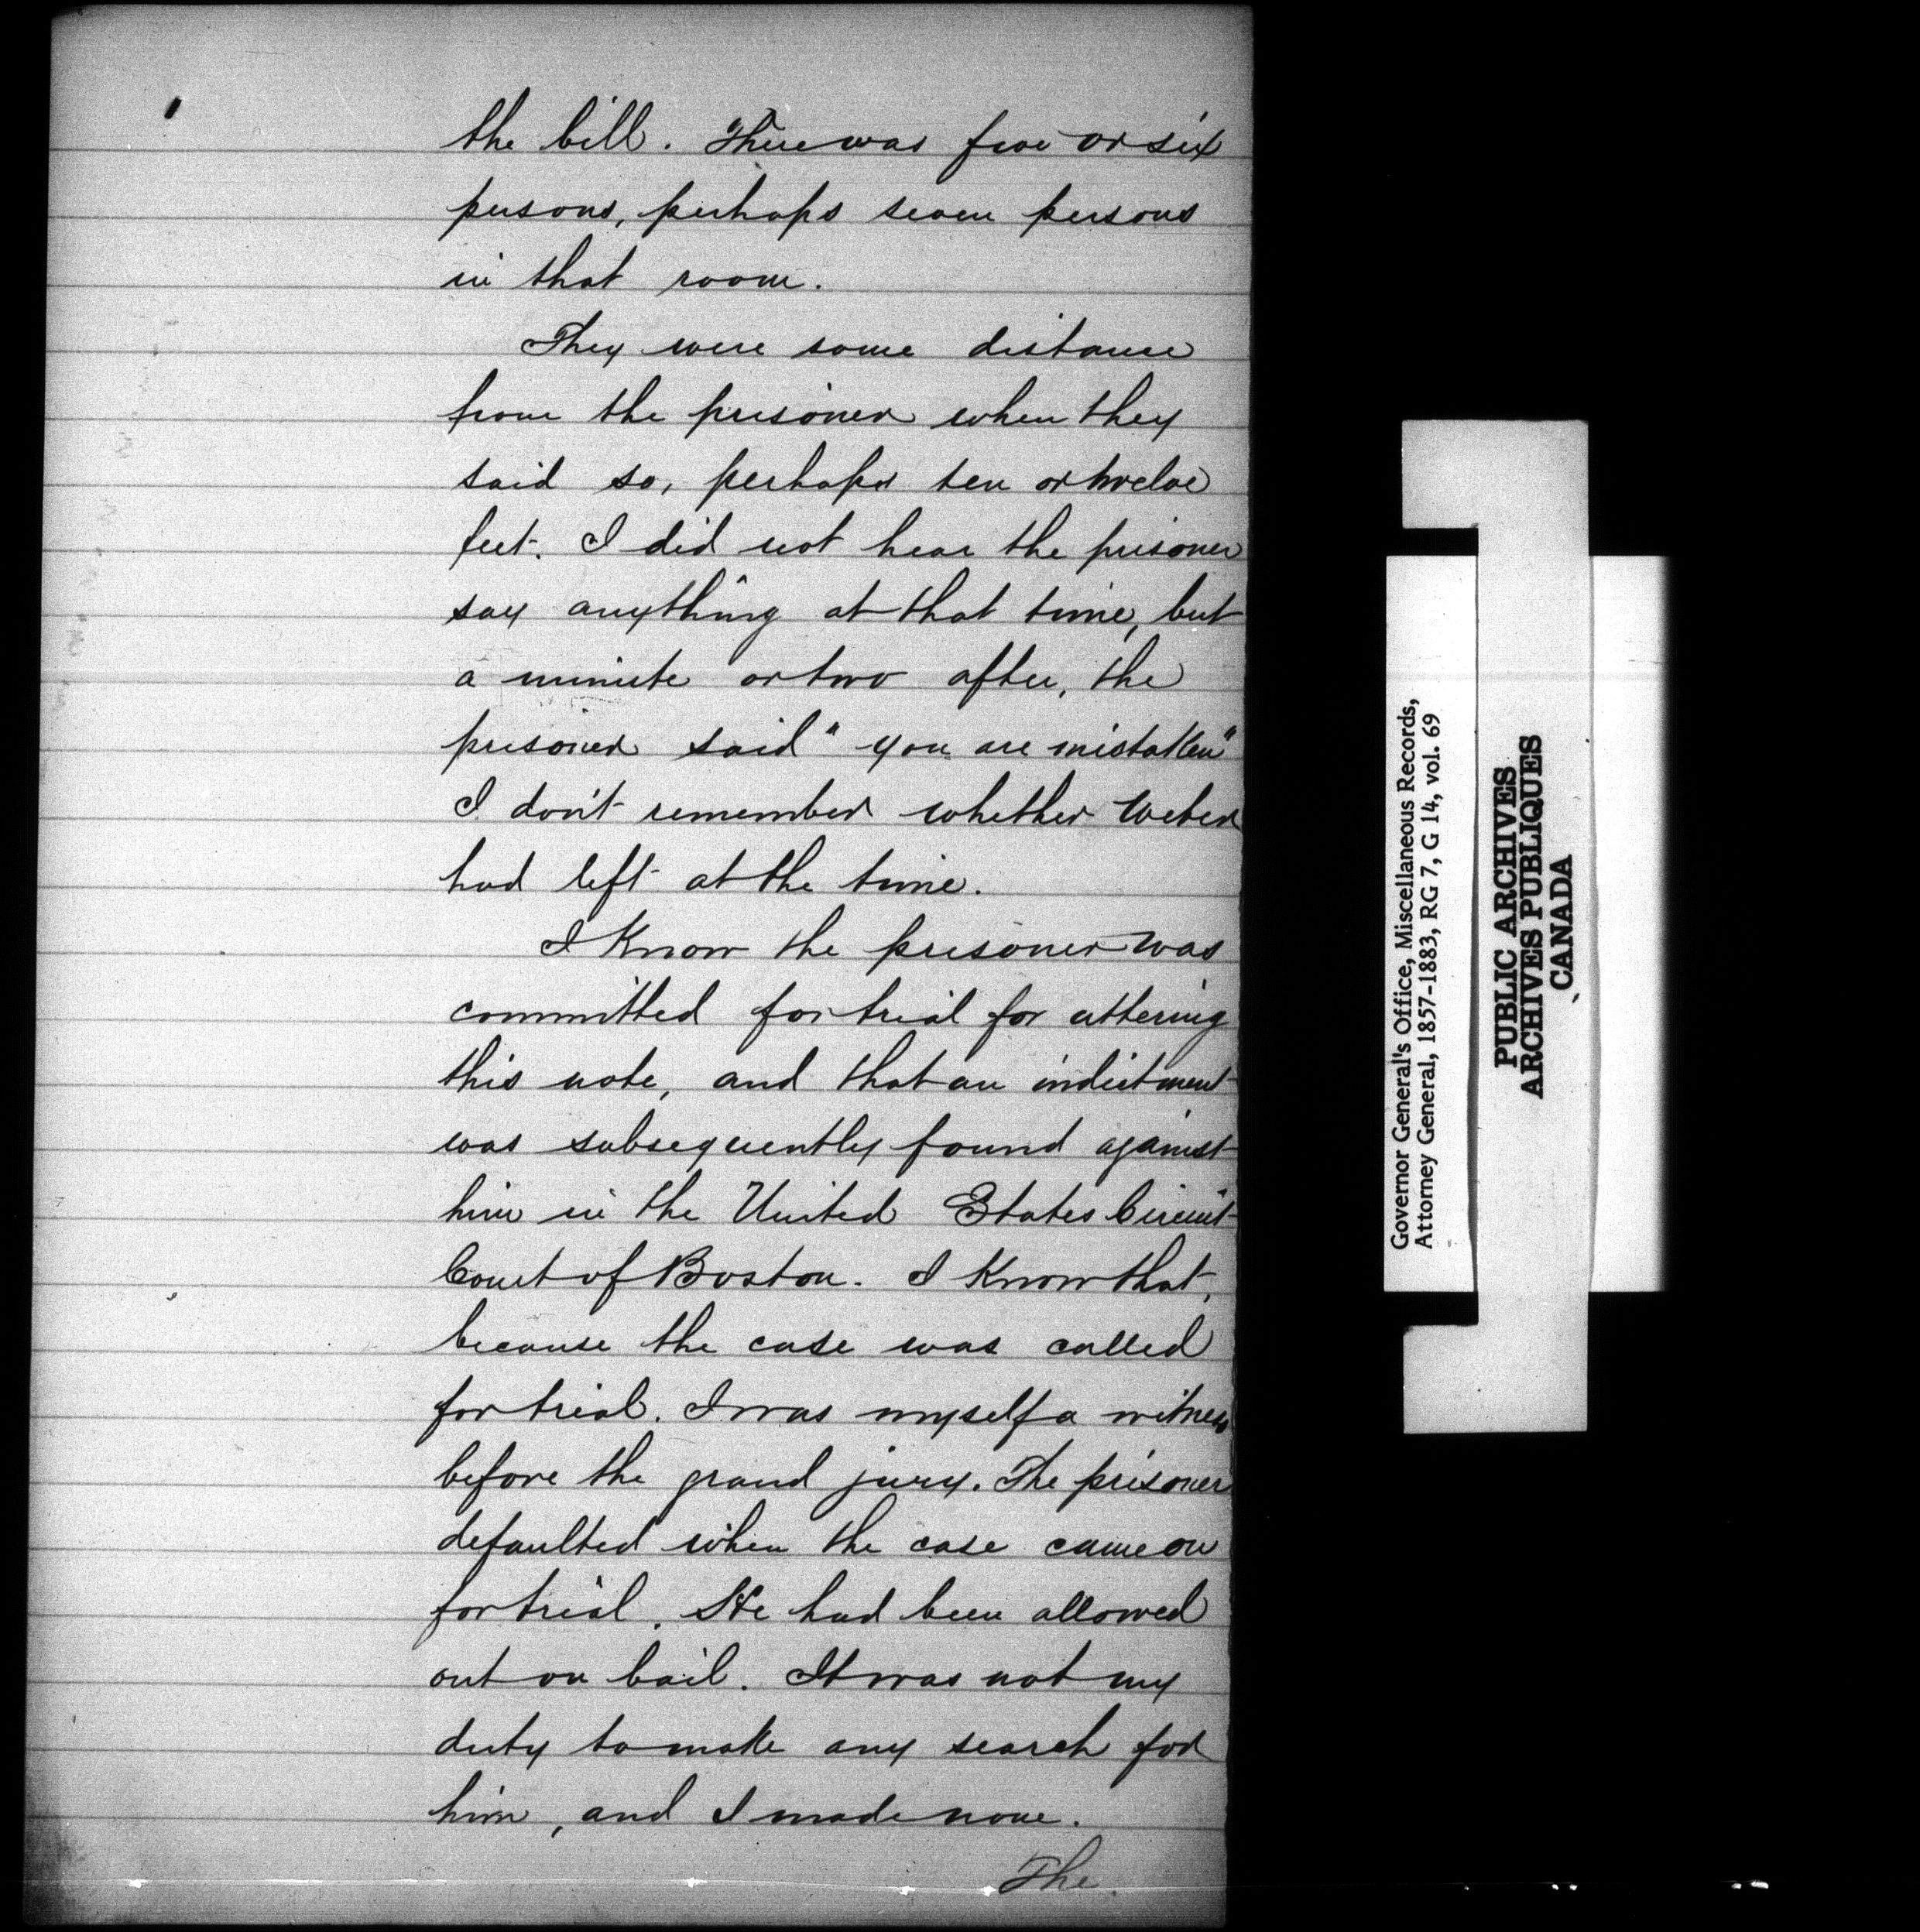 the bill. There was five or six
persons, perhaps seven persons
in that room.
They were some distance
from the prisoner when they
said so, perhaps ten or twelve
feet. I did not hear the prisoner
say anything at that time, but
a minute or two after, the
prisoner said "you are mistaken"
I don't remember whether Weber
had left at the time.
I know the prisoner was
committed for trial for uttering
this note, and that an indictment
was subsequently found against
him in the United States Circuit
Court of Boston. I know that,
because the case was called
for trial. I was myself a witness
before the grand jury. The prisoner
defaulted when the case came on
for trial. He had been allowed
out on bail. It was not my
duty to make any search for
him, and I made none.
The
Governor General's Office, Miscellaneous Records,
Attorney General, 1857-1883, RG 7, G 14, vol. 69
PUBLIC ARCHIVES
ARCHIVES PUBLIQUES
CANADA